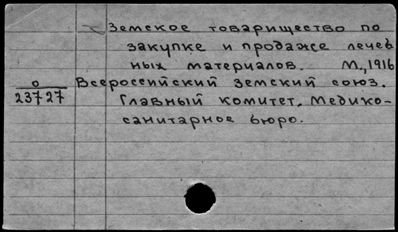 Земское товарищество по
закупке и продаже лечеб
ных материалов. М., 1916
Всероссийский земский союз.
Главный комитет. Медико-
санитарное бюро.
0
23727